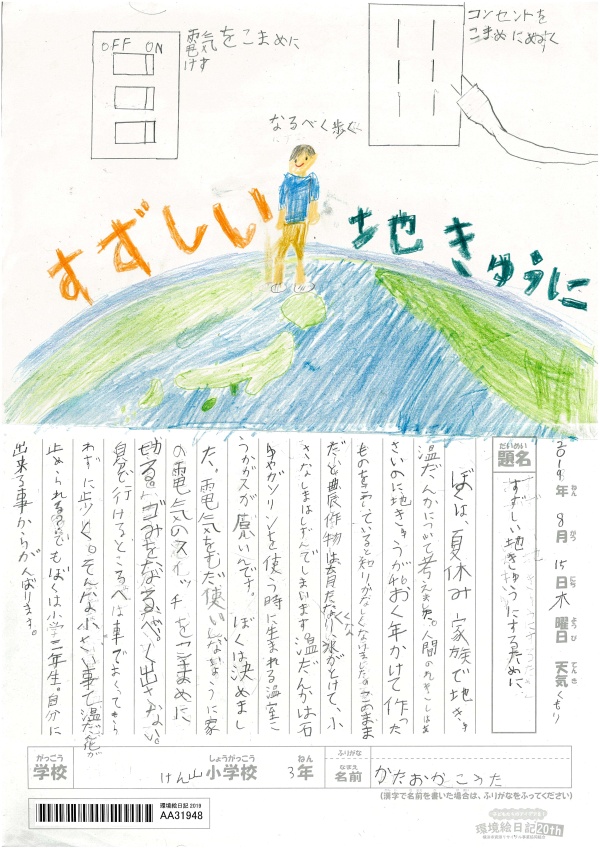 OFF ON
電気をこまめに
けす
コンセントを
こまめにぬく
なるべく歩く
すずしい
地きゅうに
2019年 8月 15日 木曜日 天気 くもり
ねん がつ にち ようび てんき
だいめい
題名
すずしい地きゅうにするために
ぼくは、夏休み家族で地きゅう
温だんかについて考えました。人間の
さいのに地きゅうが46おく年かけて作った
ものをこわしていると知りかなしくなりました。このまま
だと農作物は育たなくなり氷がとけて、小
さなしまはしずんでしまいます温だんかは石
ゆやガソリンを使う時に生まれる温室こ
うかガスが原いんです。 ぼくは決めまし
た。電気をむだ使いしないように家
の電気のスイッチをこまめに
切る。ゴミをなるべく出さない。
自分で行けるところへは車でおくってもら
わずに歩く。そんな小さい事で温だん化が
止められる。でもぼくは小学三年生。自分に
出来る事からがんばります。
がっこう
学校
けん山 小学校 3年
しょうがっこう ねん
ふりがな
なまえ
名前
かたおか こうた
(漢字で名前を書いた場合は、ふりがなをふってください)
環境絵日記 2019
AA31948
環境絵日記 20th